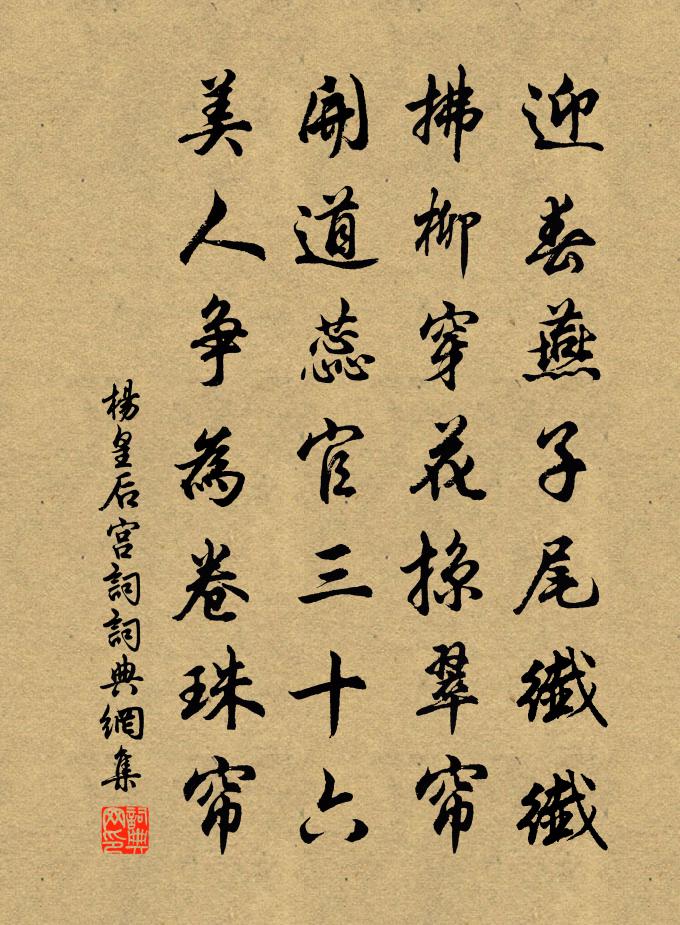 迎春燕子尾纖纖
拂柳穿花掠翠帘
聞道蕊宫三十六
美人争為卷珠帘
楊皇后宫詞詞典網集
詞典网印